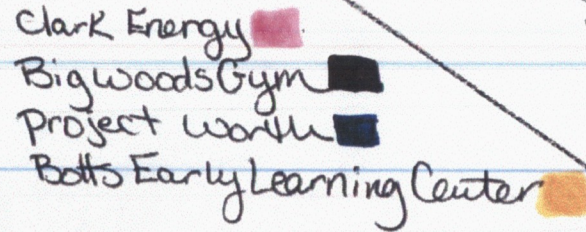 Clark Energy
Bigwoods Gym
Project Worth
Botts Early Learning Center